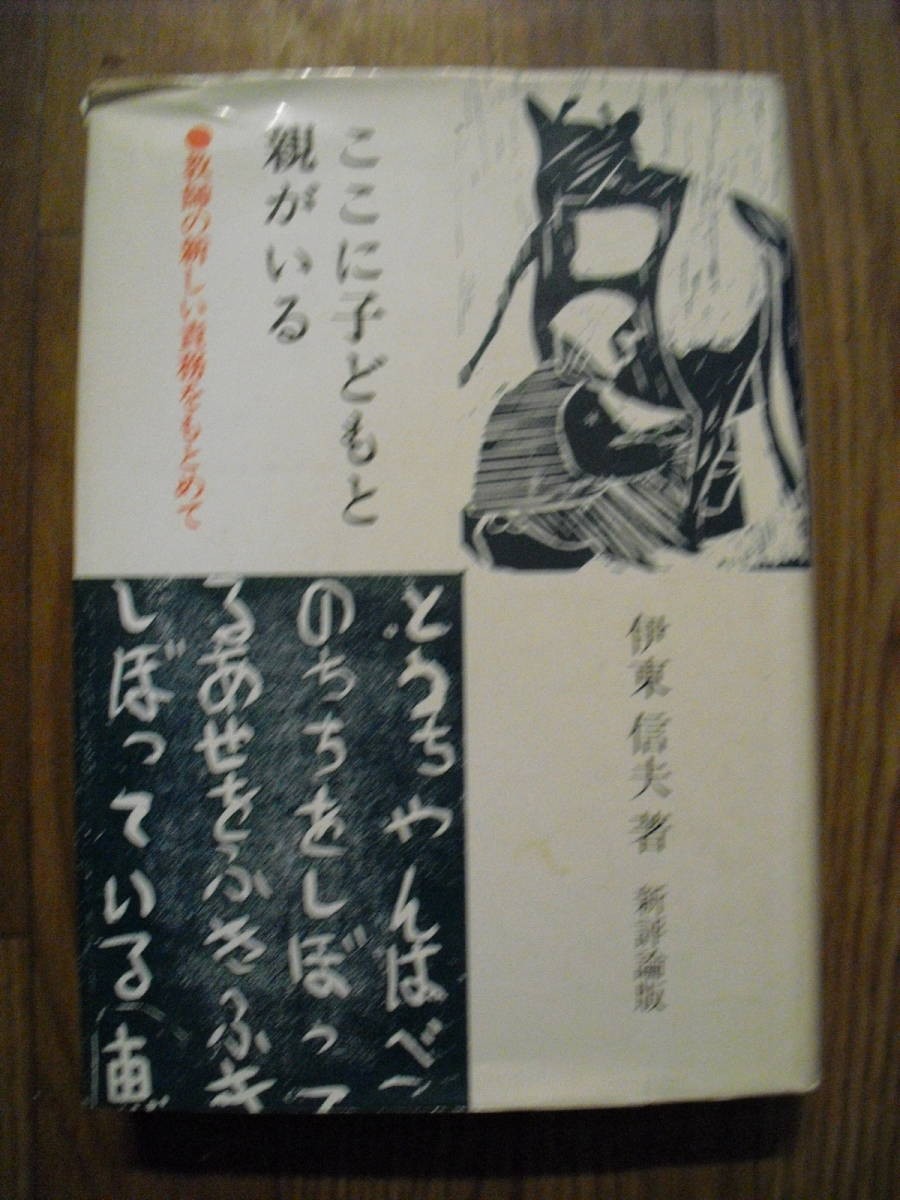 ここに子どもと
親がいる
●教師の新しい責務をもとめて
伊東信夫著 新評論版
とうちゃんはべ
のちちをしぼって
るあせをふきふき
しぼっている